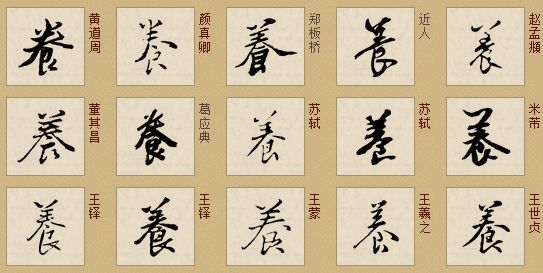 養 黄道周 養 颜真卿 養 郑板桥 養 近人 養 赵孟頫
養 董其昌 養 葛应典 養 苏轼 養 苏轼 養 米芾
養 王铎 養 王铎 養 王蒙 養 王羲之 養 王世贞